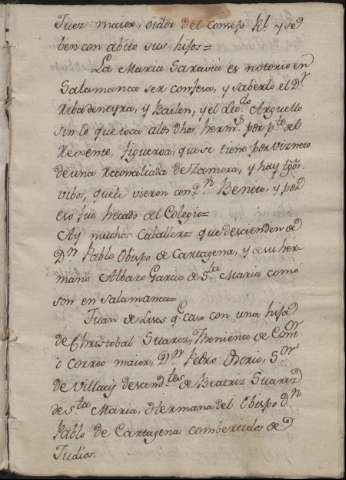 Juez maior, oidor del Consejo Rl. y se
ven con abito sus hijos=
La Maria Saravia es notorio en
Salamanca ser confesa, y saberlo el Dr
Ribadeneyra, y Bailon, y el Lizdo Arguello
sin lo que toca a los dhos. herms por pte del
Regente, Figueroa, que se tiene por vizneto
de una reconciliada de Zamora, y hay tgos.
vibos, que le vieron con Sn Benito, y por
eso fue hechado del Colegio=
Ay muchos Caballeros que descienden de
Dn Pablo Obispo de Cartagena, y de su her-
mano Albaro Garcia de Sta Maria como
son en Salamanca=
Juan de qe caso con una hija
de Christobal Suarez, Theniente de Com
o Correo maior, Dn Pedro Sor
de descendtes de Beatriz Suarez
de Sta Maria, Hermana del Obispo Dn
Pablo de Cartagena combertidos de
Judios.